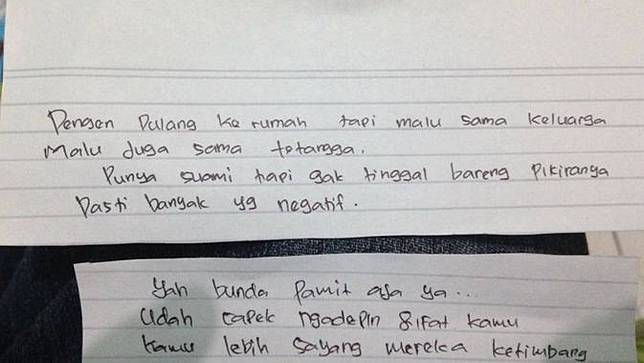 Pengen Pulang ke rumah tapi malu sama keluarga
Malu Juga sama tetangga.
Punya suami tapi gak tinggal bareng Pikiranya
Pasti banyak yg negatif.
Yah bunda Pamit aja ya..
Udah capek ngadepin sifat kamu
kamu lebih sayang mereka ketimbang